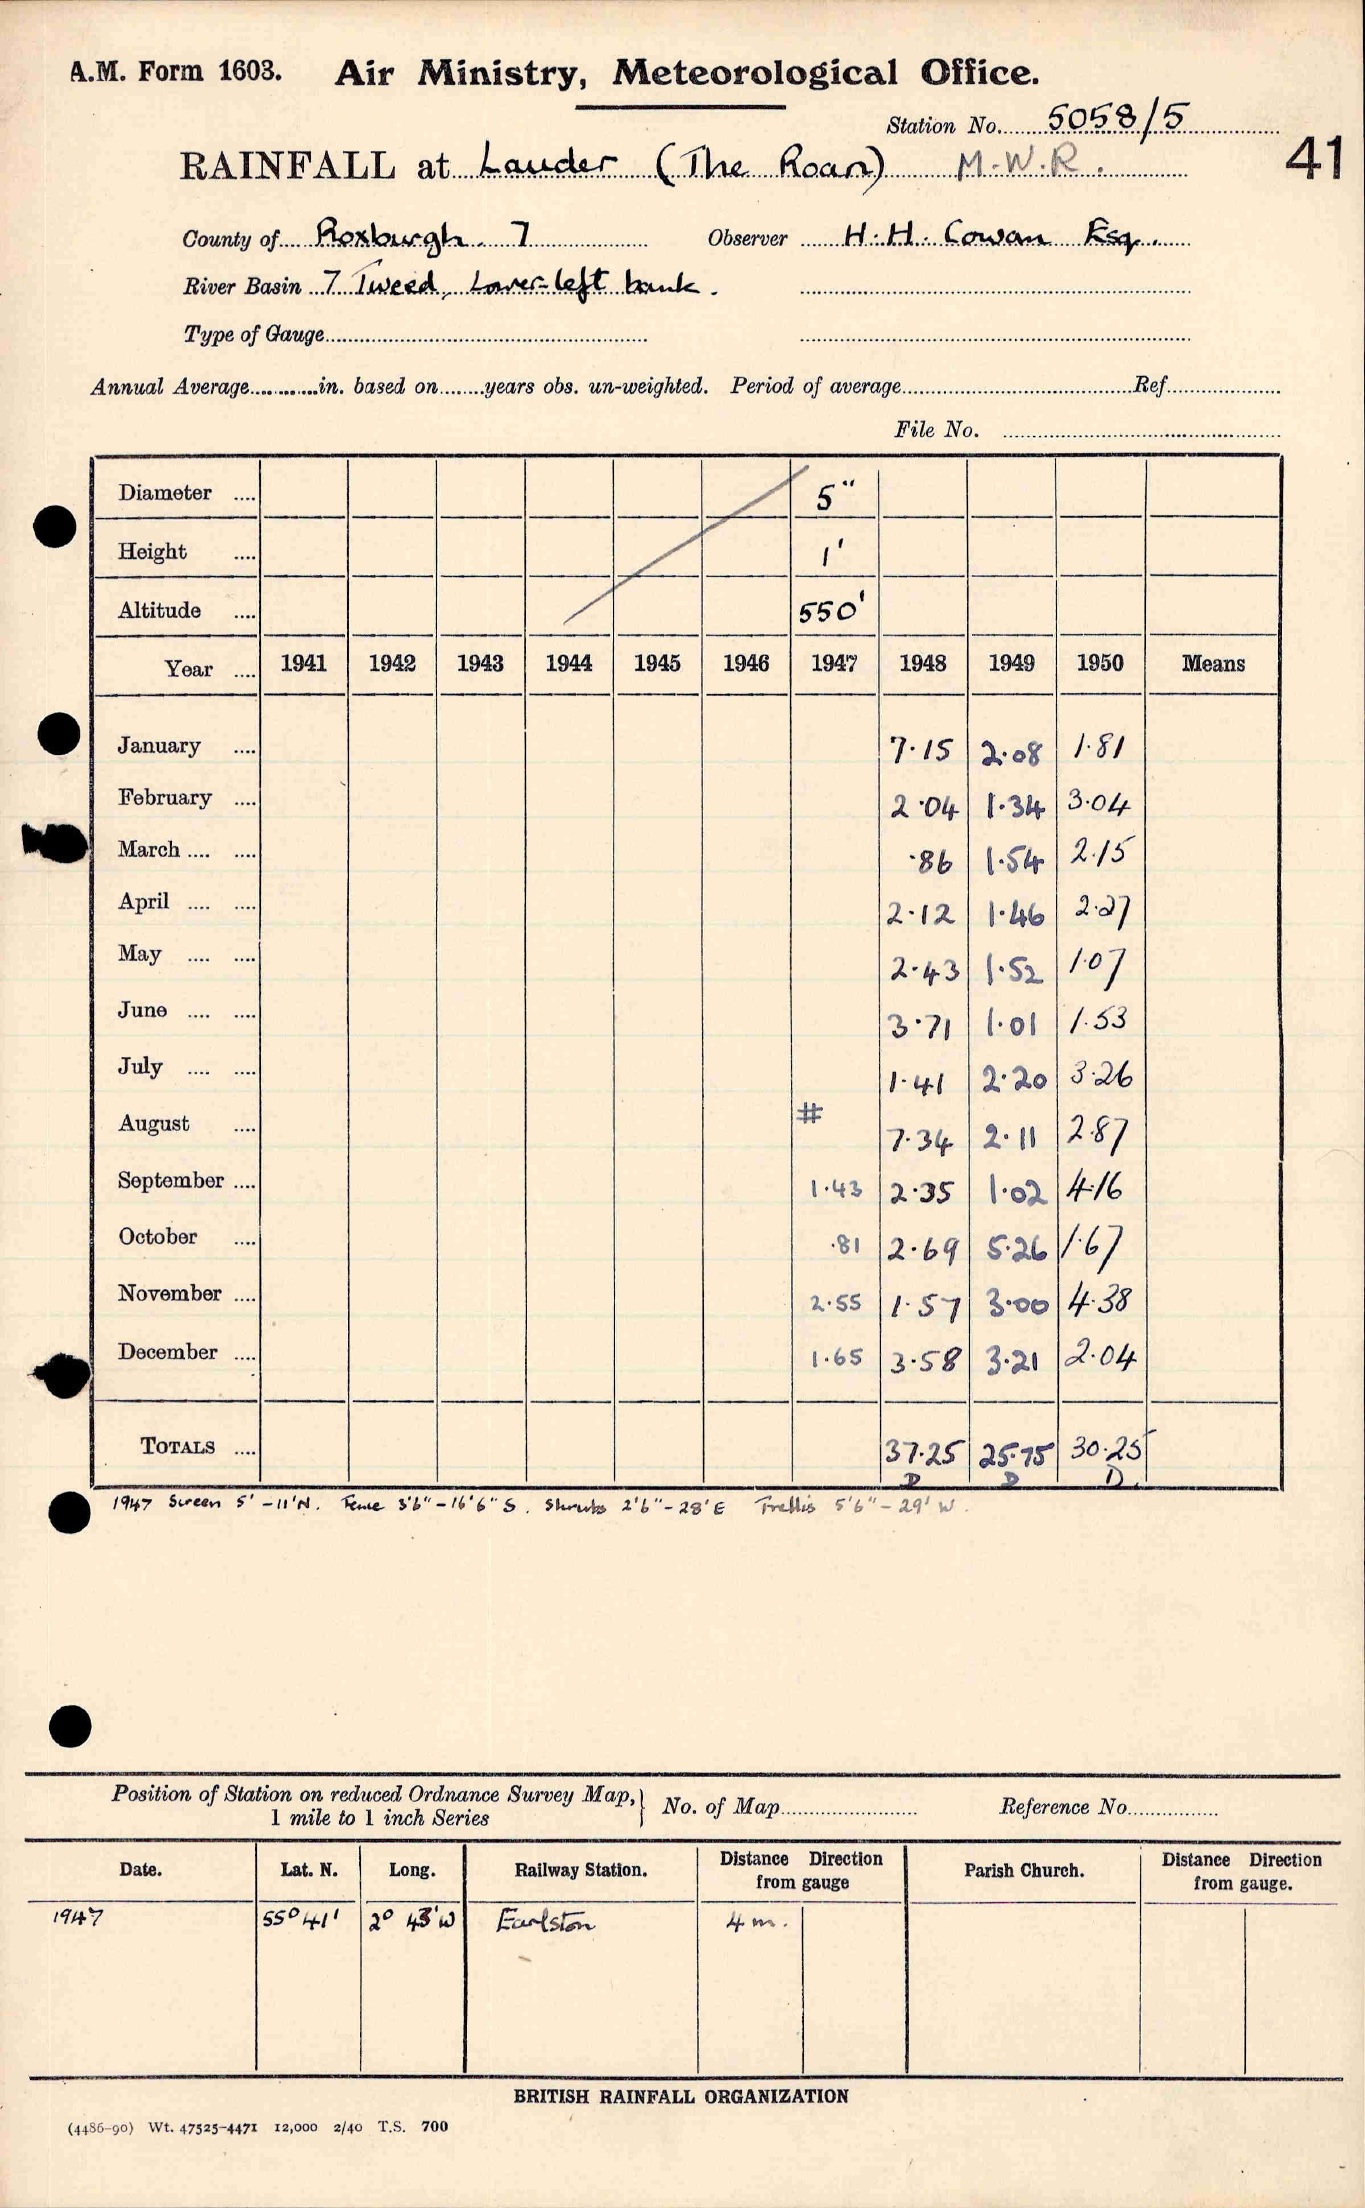 A.M. Form 1603. Air Ministry, Meteorological Office.
Station No. 5058/5
41
RAINFALL at Lauder (The Roan) M.W.R.
County of Roxburgh. 7 Observer H.H. Cowan Esq.
River Basin 7 Tweed, Lower-left bank.
Type of Gauge
Annual Average in. based on years obs. un-weighted. Period of average Ref.
File No.
Diameter .... 5"
Height .... 1'
Altitude .... 550'
Year .... 1941 1942 1943 1944 1945 1946 1947 1948 1949 1950 Means
January .... 7.15 2.08 1.81
February .... 2.04 1.34 3.04
March .... .... .86 1.54 2.15
April .... .... 2.12 1.46 2.27
May .... .... 2.43 1.52 1.07
June .... .... 3.71 1.01 1.53
July .... .... 1.41 2.20 3.26
August .... # 7.34 2.11 2.87
September .... 1.43 2.35 1.02 4.16
October .... .81 2.69 5.26 1.67
November .... 2.55 1.57 3.00 4.38
December .... 1.65 3.58 3.21 2.04
TOTALS .... 37.25 25.75 30.25
D D D.
1947 Screen 5' - 11' N. Fence 3'6" - 16'6" S. Shrubs 2'6" - 28' E Trellis 5'6" - 29' W.
Position of Station on reduced Ordnance Survey Map, } No. of Map Reference No.
1 mile to 1 inch Series
Date. Lat. N. Long. Railway Station. Distance Direction from gauge Parish Church. Distance Direction from gauge.
1947 55° 41' 2° 43' W Earlston 4 m.
BRITISH RAINFALL ORGANIZATION
(4486-90) Wt. 47525-4471 12,000 2/40 T.S. 700